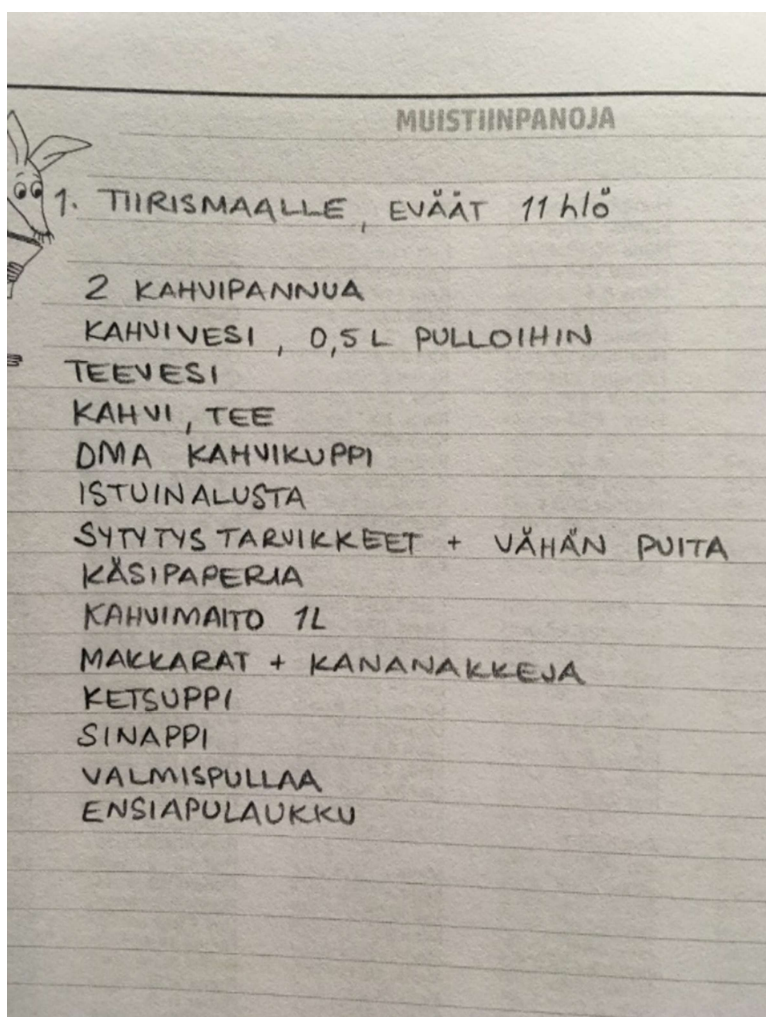 MUISTIINPANOJA
1. TIIRISMAALLE, EVÄÄT 11 hlö
2 KAHVIPANNUA
KAHVIVESI, 0,5 L PULLOIHIN
TEEVESI
KAHVI, TEE
OMA KAHVIKUPPI
ISTUINALUSTA
SYTYTYSTARVIKKEET + VÄHÄN PUITA
KÄSIPAPERIA
KAHVIMAITO 1L
MAKKARAT + KANANAKKEJA
KETSUPPI
SINAPPI
VALMISPULLAA
ENSIAPULAUKKU